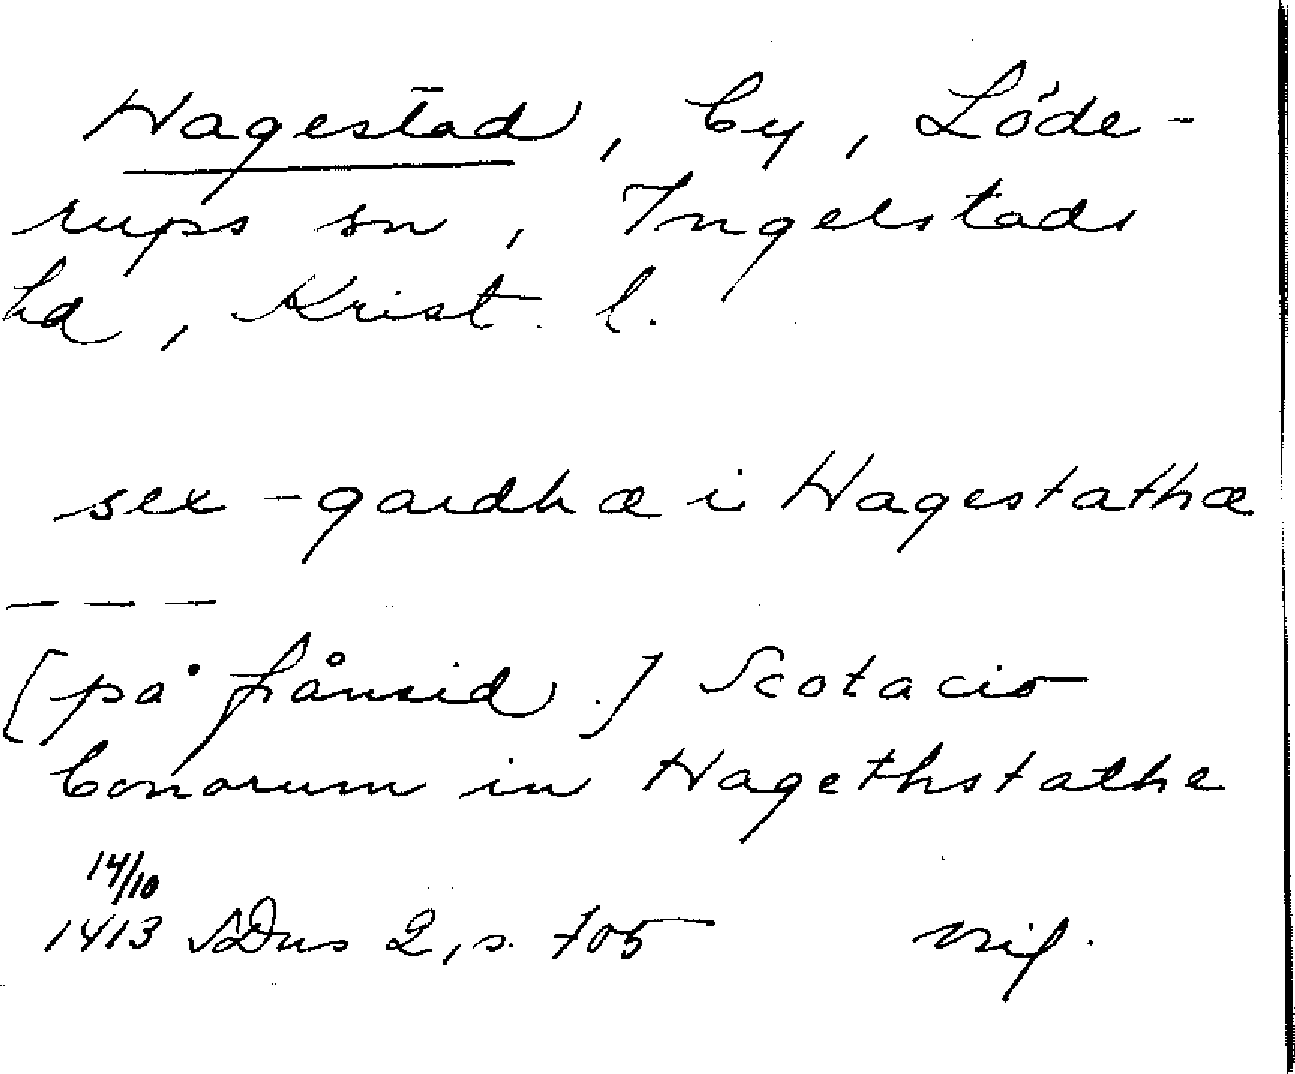 Hagestad, by, Löde-
rups sn, Ingelstads
hd, Krist. l.
sex - gardhæ i Hagestathæ
— — —
[på frånsid.] Scotacio
bonorum in Hagethstathe
14/10
1413 SDns 2, s. 705 orig.